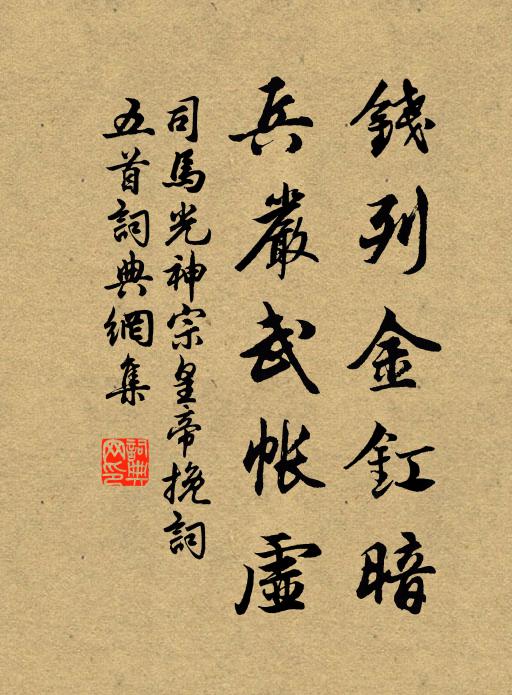 錢列金釭暗
兵嚴武帳虛
司馬光神宗皇帝挽詞
五首詞典網集
詞典
網印